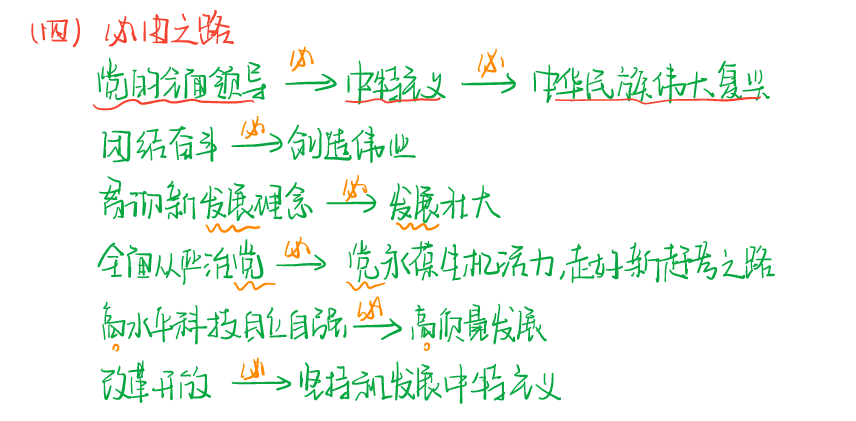 (四) 必由之路
党的全面领导 必→ 中特主义 必→ 中华民族伟大复兴
团结奋斗 必→ 创造伟业
贯彻新发展理念 必→ 发展壮大
全面从严治党 必→ 党永葆生机活力,走好新赶考之路
高水平科技自立自强 必→ 高质量发展
改革开放 必→ 坚持和发展中特主义